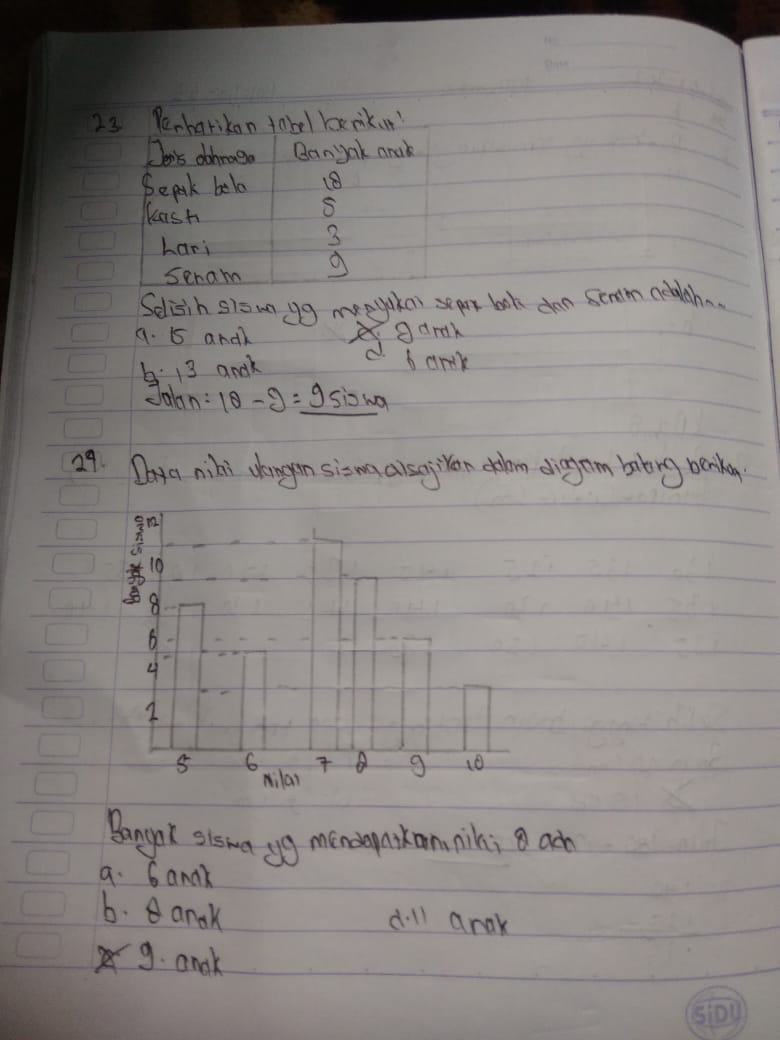 23. Perhatikan tabel berikut!
Jenis olahraga Banyak anak
Sepak bola 18
Kasti 5
Lari 3
Senam 9
Selisih siswa yg menyukai sepak bola dan Senam adalah...
a. 15 anak c. 9 anak
b. 13 anak d 6 anak
Jalan = 18 - 9 = 9 siswa
24. Data nilai ulangan siswa disajikan dalam diagram batang berikut.
Banyak siswa
12
10
8
6
4
2
5 6 7 8 9 10
Nilai
Banyak siswa yg mendapatkan nilai 8 adh
a. 6 anak
b. 8 anak d. 11 anak
9. anak
SiDU